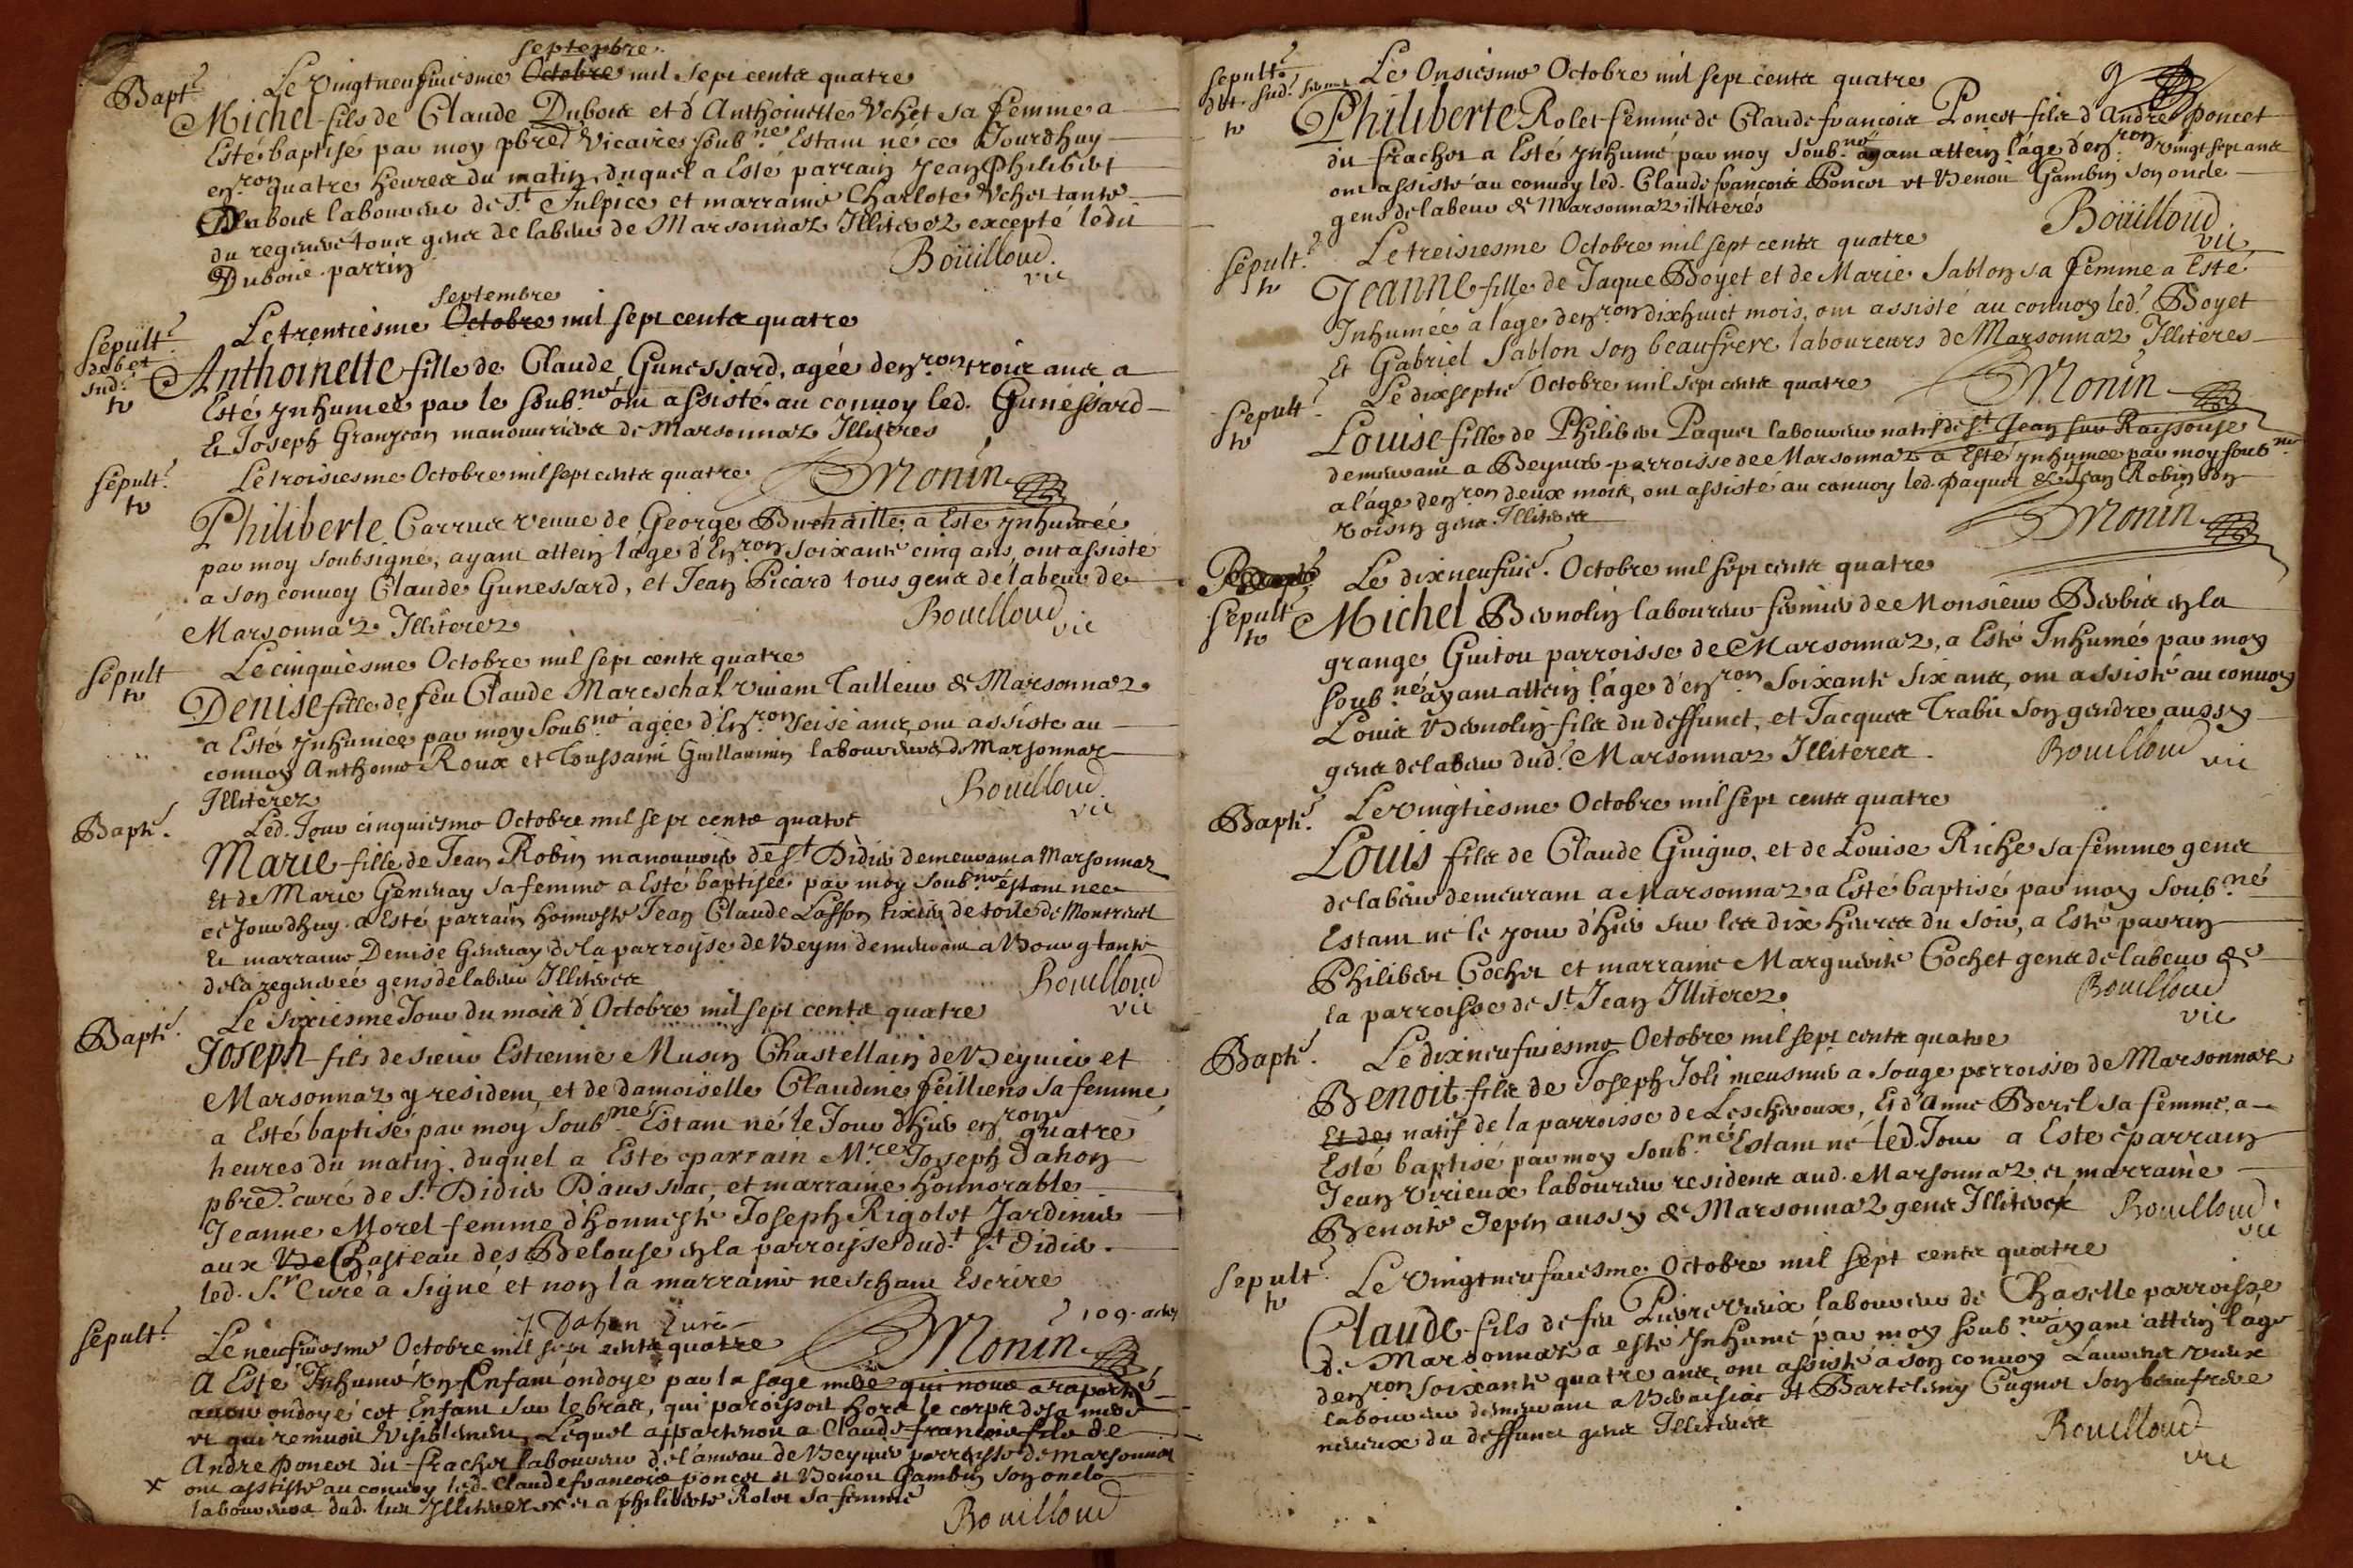 septepbre
Bapt.e Le vingtneufuiesme Octobre mil sept cents quatre
Michel fils de Claude Dubois et d'Anthoinette Vchet sa femme a
Esté baptisé par moy pbre Vicaire soub.né Estant né ce Jourdhuy
enron quatre heures du matin, duquel a Esté parrain Jean Philibert
labour laboureur de St Sulpice et marraine Charlote Vchet tante
du regenere tous gens de labeur de Marsonnaz Illiterez excepté ledit
Dubois parrin
Boüilloud.
vic
septembre
Sepult.e Le trentiesme Octobre mil sept cents quatre
debet
sud.
tv
Anthoinette fille de Claude Gunessard, agée denron trois ans a
Esté ynhumée par le soub.né ont assisté au convoy led. Gunessard
Et Joseph Granjean manouuriers de Marsonnaz Illiteres
Monin
Sepult.e Le troisiesme Octobre mil sept cents quatre
tv
Philiberte Carrus veuue de George Buchaille, a Esté ynhumée
par moy soubsigné, ayant attein l'age d'Enron soixante cinq ans, ont assisté
a son convoy Claude Gunessard, et Jean Picard tous gens de labeur de
Marsonnaz Illiterez
Bouilloud
vic
Sepult Le cinquiesme Octobre mil sept cents quatre
tv
Denise fille de feu Claude Mareschal viuant Tailleur de Marsonnaz
a Esté ynhumée par moy soub.né agée d'Enron seise ans, ont assisté au
convoy Anthoine Roux et Toussaint Guillaumin laboureurs de Marsonnaz
Illiterez
Bouilloud.
vic
Bapte. Led. Jour cinquiesme Octobre mil sept cents quatre
Marie fille de Jean Robin manouurier de St Didier demeurant a Marsonnaz
Et de Marie Genuray sa femme a Esté baptisée par moy soub.né éstant née
ce jourdhuy a Esté parrain honneste Jean Claude Lasson tixier de toile de Montreuel
Et marraine Denise Genuray de la parroisse de Beyni demeurant a Bourg tante
de la regenerée gens de labeur Illiteres
Bouilloud
vic
Bapte. Le sixiesme Jour du mois d'Octobre mil sept cents quatre
Joseph fils de sieur Estienne Musin Chastellain de Beyuiers et
Marsonnaz y resident, et de damoiselle Claudine feilliens sa femme
a Esté baptisé par moy soub.né Estant né le Jour d'hier enron quatre
heures du matin, duquel a Esté parrain Mre Joseph Dahon
pbre. curé de St Didier Daussiac, et marraine honnorable
Jeanne Morel femme d'honneste Joseph Rigolot Jardinier
aux Vde Chasteau des Belouse en la parroisse dud.t St Didier.
led. Sr Curé a signé et non la marraine ne schant Escrire
J. Dahon Curé
109. actes
Monin
Sepult.e Le neufuiesme Octobre mil sept cents quatre
A Esté Inhumé Vn Enfant ondoyé par la sage mere qui nous a raporté
auoir ondoyé cet Enfant sur le bras, qui paroissoit hors le corps de sa mere
et qui remuoit Visiblement, Lequel appartenoit a Claude francois fils de
Andre Poncet dit frachet laboureur de l'ameau de Beyuier parroisse de Marsonnaz
x ont assisté au convoy led. Claude francois poncet et Benoit Gambin son oncle
laboureurs dud. lieu Illiteres x et a philiberte Rolet sa femme
Bouilloud
9
Sepult.e Le Onsiesme Octobre mil sept cents quatre
dbt. sud.
tv
Philiberte Rolet femme de Claude francois Poncet fils d'André Poncet
dit frachet a Esté ynhumé par moy soub.né ayant attein l'age d'enron vingt sept ans
ont assisté au convoy led. Claude francois Poncet et Benoit Gambin son oncle
gens de labeur de Marsonnaz illiterés
Boüilloud
vic
Sepult.e Le treisiesme Octobre mil sept cents quatre
tv
Jeanne fille de Jaque Boyet et de Marie Sablon sa femme a Esté
Inhumée a lage denron dixhuict mois, ont assisté au convoy led.t Boyet
Et Gabriel Sablon son beaufrere laboureurs de Marsonnaz Illiteres
Monin
Sepult.e Le dixseptie Octobre mil sept cents quatre
tv
Louise fille de Philibert Paquet laboureur natif de St Jean sur Raissouse
demeurant a Beyuiers parroisse de Marsonnaz a Esté ynhumée par moy soub.né
a lage denron deux mois, ont assisté au convoy led. paquet et Jean Robin son
voisin gens Illiteres
Monin
Le dixneufuie. Octobre mil sept cents quatre
Sepult
tv
Michel Bernolin laboureur fermier de Monsieur Barbier en la
grange Guitou parroisse de Marsonnaz, a Esté Inhumé par moy
soub.né ayant attein l'age d'enron soixante six ans, ont assisté au convoy
Louis Bernolin fils du deffunct, et Jacques Trabit son gendre aussy
gens de labeur dud.t Marsonnaz Illiteres.
Bouilloud
vic
Bapte. Le vingtiesme Octobre mil sept cents quatre
Louis fils de Claude Guiguo, et de Louise Riche sa femme gens
de labeur demeurant a Marsonnaz a Esté baptisé par moy soub.né
Estant né le jour d'hier sur les dix heures du soir, a Esté parrin
Philibert Cochet et marraine Marguerite Cochet gens de labeur de
la parroisse de St Jean Illiterez
Bouilloud
vic
Bapte. Le dixneufuiesme Octobre mil sept cents quatre
Benoit fils de Joseph Joli meusnier a Souge parroisse de Marsonnaz
Et de natif de la parroisse de Lescheroux, Et d'Anne Berel sa femme, a
Esté baptisé par moy soub.né Estant né led. Jour a Esté parrain
Jean Virieux laboureur resident aud. Marsonnaz et marraine
Benoite Depin aussy de Marsonnaz gens Illiteres
Bouilloud
vic
Sepult.e Le Vingtneufuiesme Octobre mil sept cents quatre
tv
Claude fils de feu Pierre Vieux laboureur de Chaselle parroisse
de Marsonnaz a esté Inhumé par moy soub.né ayant attein l'age
denron soixante quatre ans, ont assisté a son convoy Laurent vieux
laboureur demeurant a et Bartelemy Cugnet son beaufrere
neueux du deffunct gens Illiteres
Bouilloud
vic